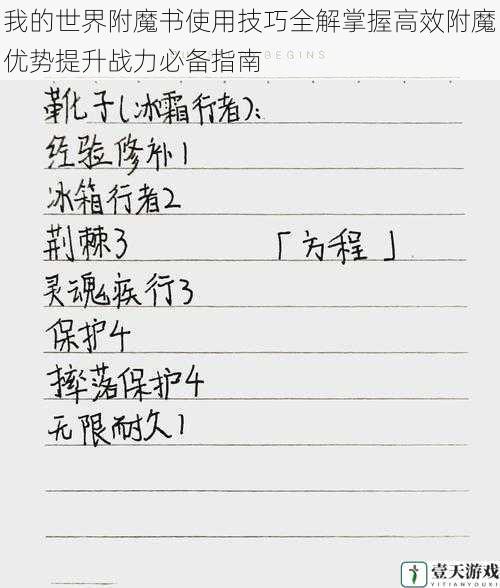 我的世界附魔书使用技巧全解掌握高效附魔
优势提升战力必备指南
BEGINS
靴化子(冰霜行者):
经验修补1
冰箱行者2
荆棘3 「方程」
灵魂疾行3
保护4
摔落保护4
无限耐久1
壹天游戏
YITIANYOUXI